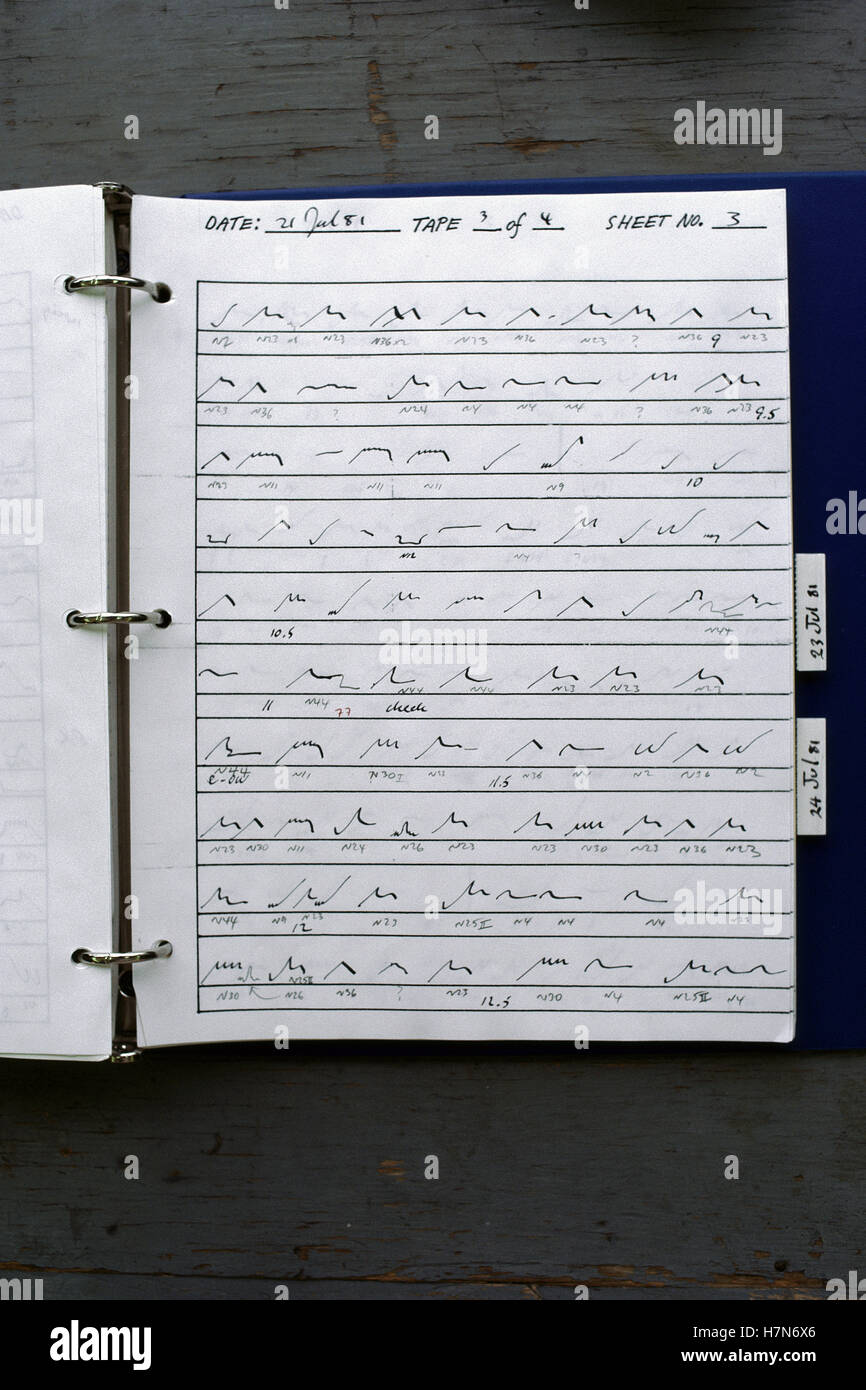 DATE: 21 Jul 81 TAPE 3 of 4 SHEET NO. 3
N23 N23 N36 N23 N36 N23 ? N36 9 N23
N23 N36 ? N24 N4 N4 N4 ? N36 N23 9.5
N23 N11 N11 N11 N9 10
N12 N4 ?
10.5 N44
11 N44 77 N44 check N44 N23 N23 N23
N44 e-ow N11 ?N30I 11.5 N36 N2 N36 N2
N23 N30 N11 N24 N26 N23 N23 N30 N23 N36 N23
N44 N9 N23 12 N23 N25II N4 N4 N4 N25
N30 N26 N25II N36 ? N23 12.5 N30 N4 N25II N4
23 Jul 81
24 Jul 81
alamy
alamy
Image ID: H7N6X6
www.alamy.com